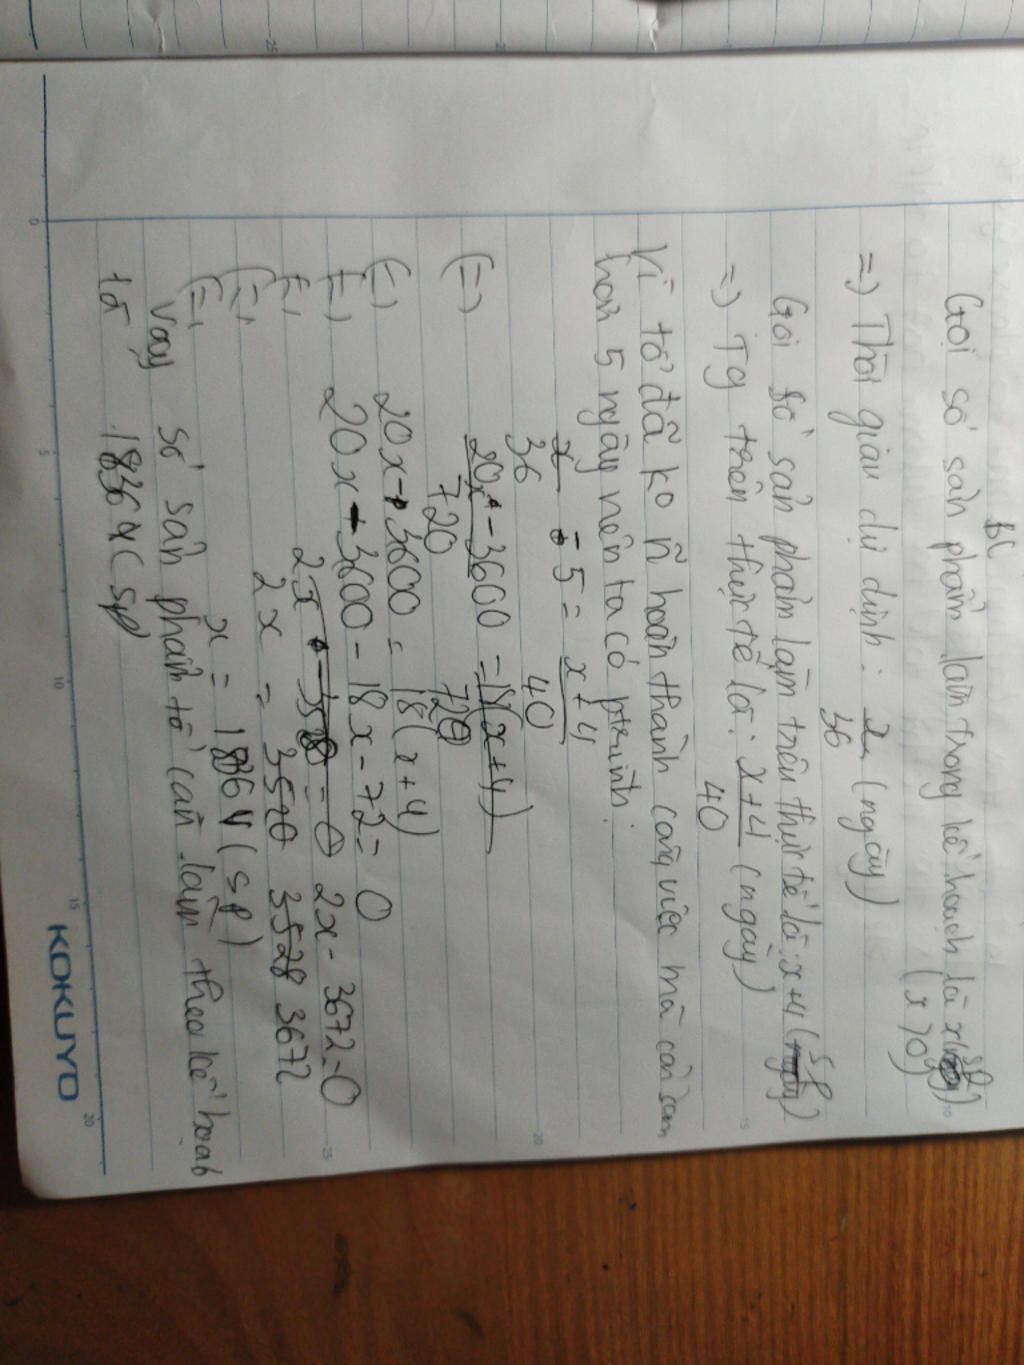 BC
Gọi số sản phẩm làm trong kế hoạch là x (sp)
(x > 0)
=) Thời gian dự định : x/36 (ngày)
Gọi số sản phẩm làm trên thực tế là : x+4 (sp)
=) Tg trên thực tế là : x+4/40 (ngày)
Vì tổ đã ko ~ hoàn thành công việc mà còn sớm
hơn 5 ngày nên ta có ptrình :
x/36 - 5 = x+4/40
(=) 20x - 3600/720 = 18(x+4)/720
(=) 20x - 3600 = 18(x+4)
(=) 20x - 3600 - 18x - 72 = 0
(=) 2x - 3672 = 0
(=) 2x = 3672
(=) x = 1836 (sp)
Vậy số sản phẩm tổ cần làm theo kế hoạch
là 1836 (sp)
KOKUYO
0 5 10 15 20
10
15
20
25
25